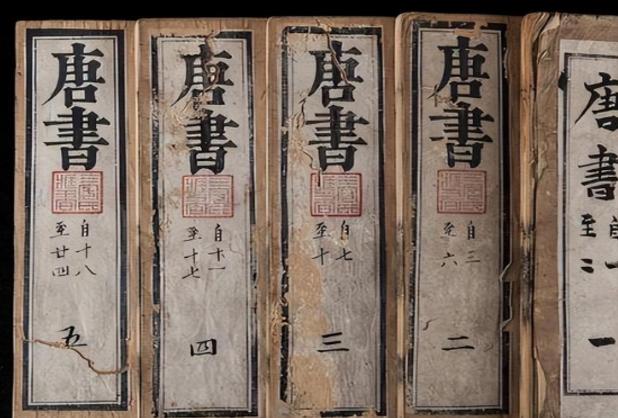 唐書
自一
至二
一
唐書
自三
至六
二
唐書
自七
至十
三
唐書
自十一
至十七
四
唐書
自十八
至廿四
五